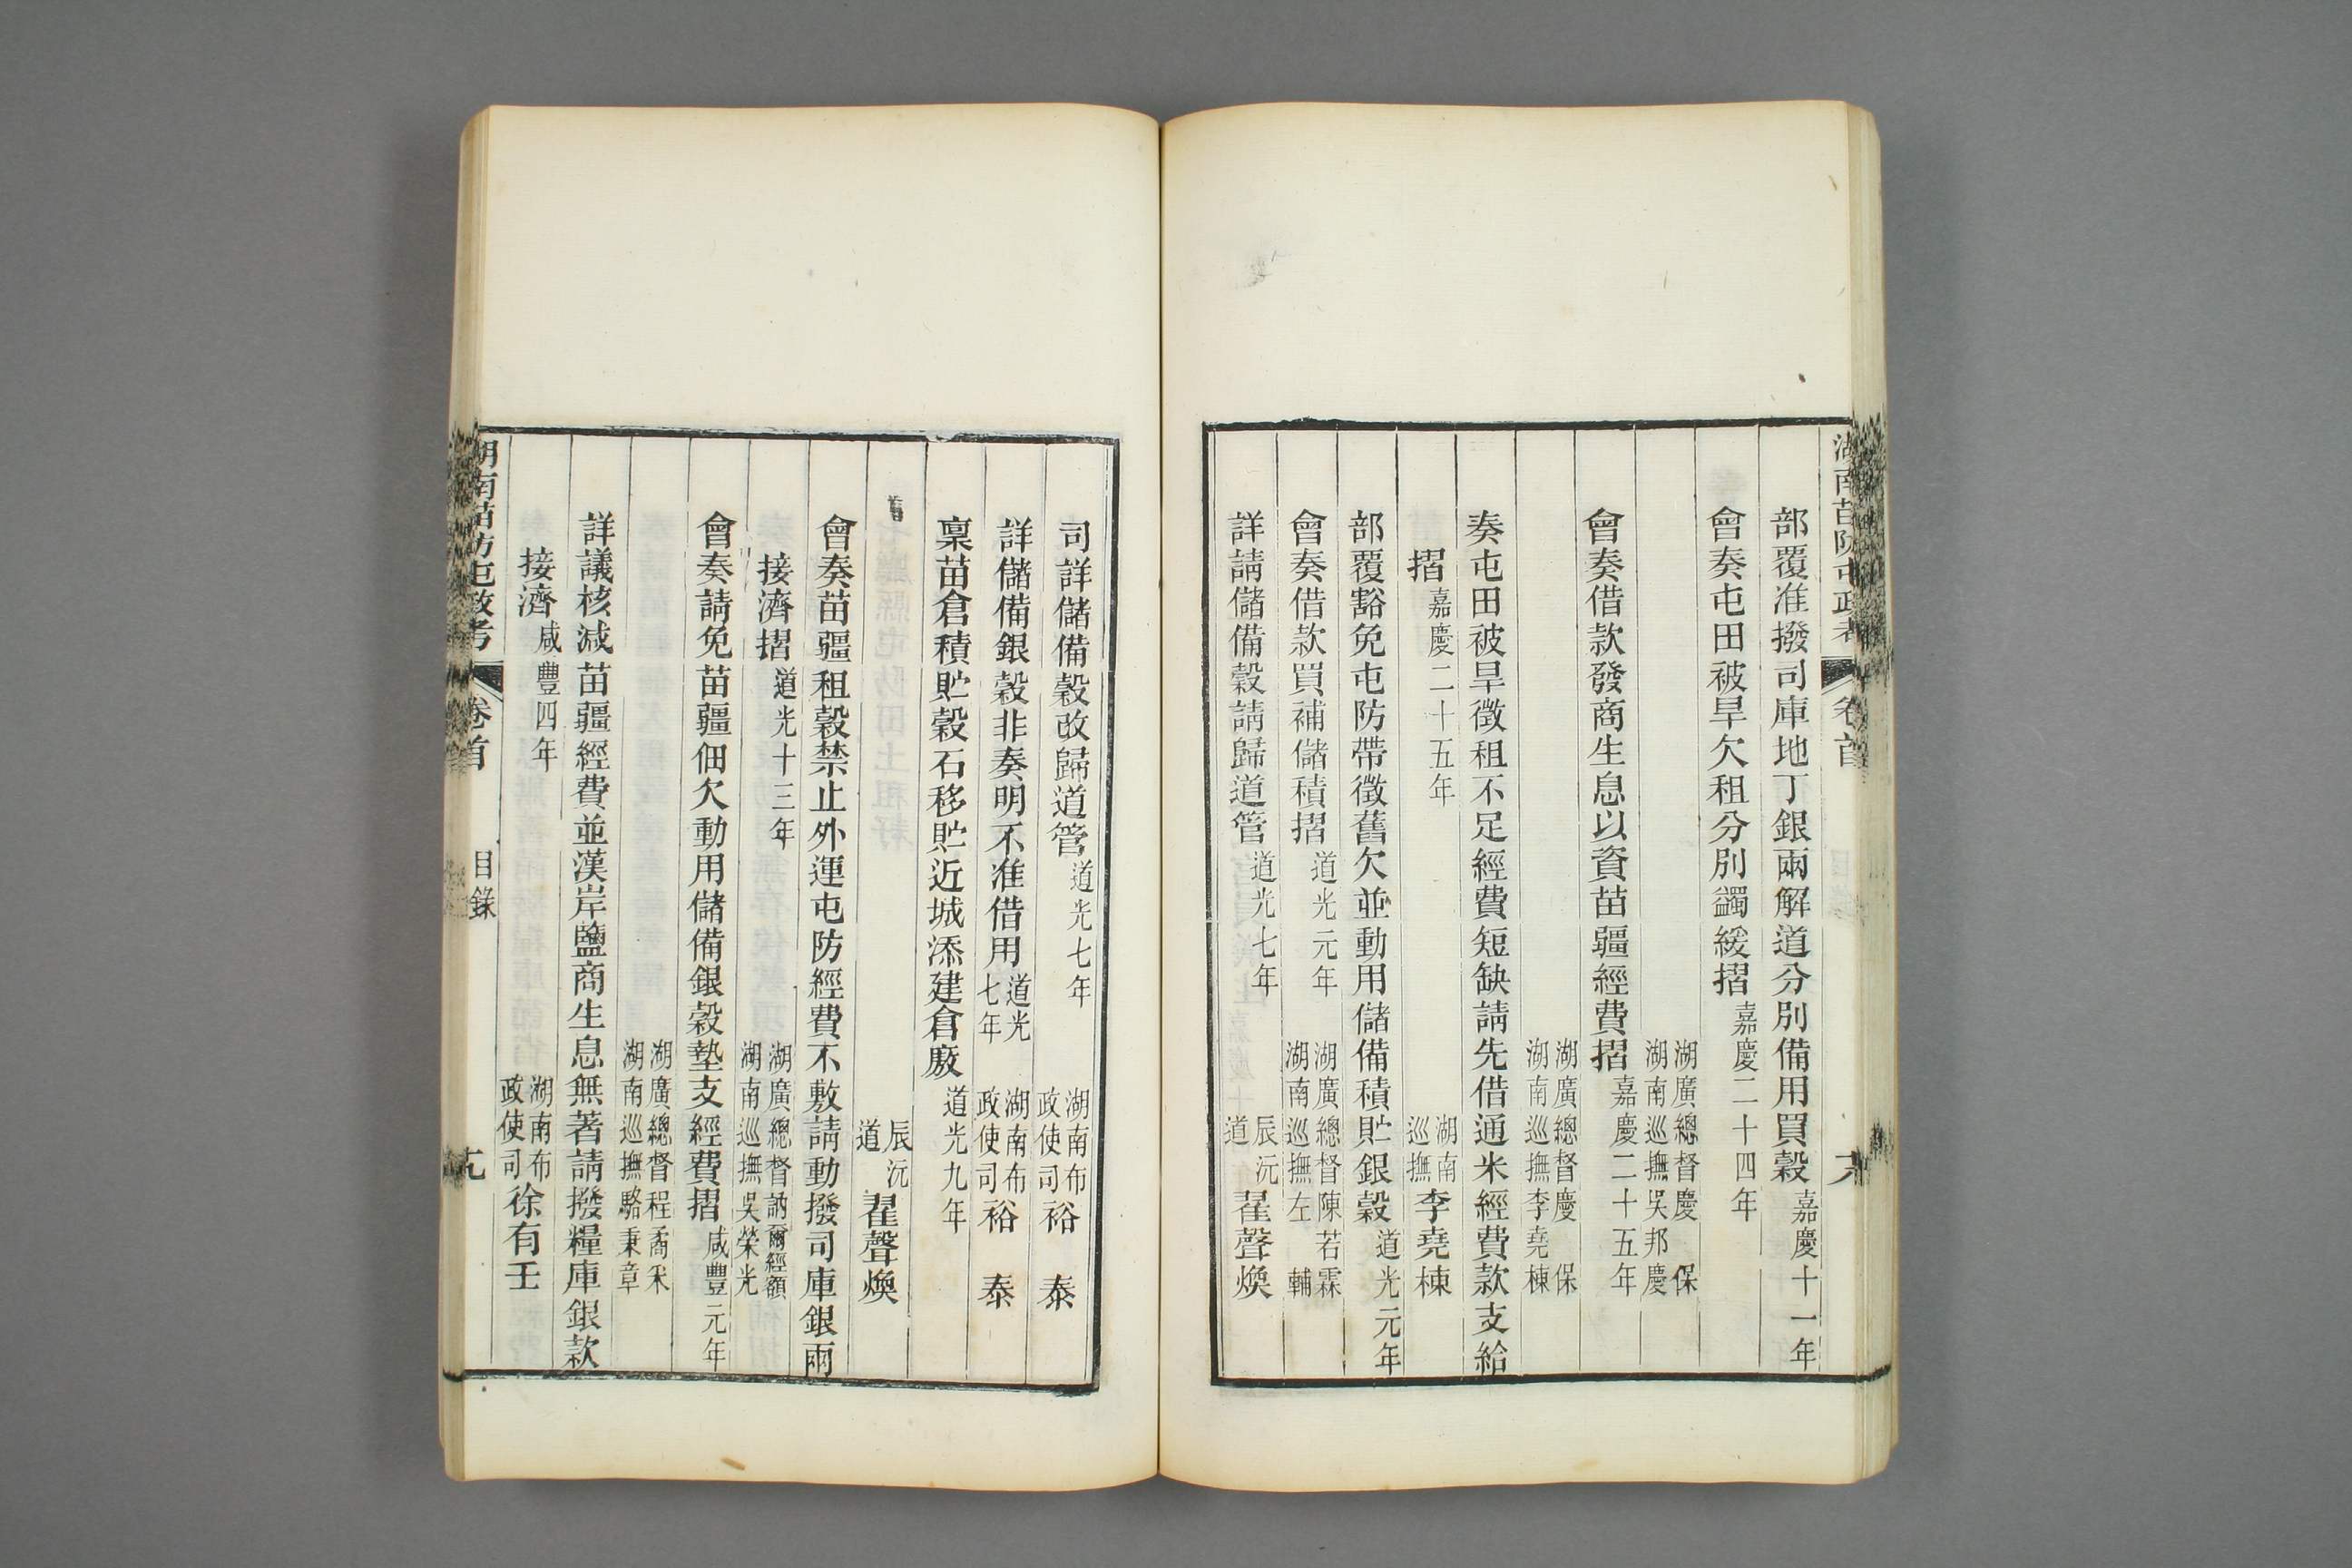 湖南苗防屯政考 卷首 目錄
部覆准撥司庫地丁銀兩解道分別備用買穀嘉慶十一年
會奏屯田被旱欠租分別蠲緩摺嘉慶二十四年
湖廣總督慶保
湖南巡撫吳邦慶
會奏借款發商生息以資苗疆經費摺嘉慶二十五年
湖廣總督慶保
湖南巡撫李堯棟
奏屯田被旱徵租不足經費短缺請先借通米經費款支給
摺嘉慶二十五年 湖南巡撫李堯棟
部覆豁免屯防帶徵舊欠並動用儲備積貯銀穀道光元年
會奏借款買補儲積摺道光元年 湖廣總督陳若霖
湖南巡撫左輔
詳請儲備穀請歸道管道光七年 辰沅道翟聲煥
司詳儲備穀改歸道管道光七年 湖南布政使司裕泰
詳儲備銀穀非奏明不准借用道光七年 湖南布政使司裕泰
稟苗倉積貯穀石移貯近城添建倉廒道光九年
辰沅道翟聲煥
會奏苗疆租穀禁止外運屯防經費不敷請動撥司庫銀兩
接濟摺道光十三年 湖廣總督訥爾經額
湖南巡撫吳榮光
會奏請免苗疆佃欠動用儲備銀穀墊支經費摺咸豐元年
湖廣總督程矞采
湖南巡撫駱秉章
詳議核減苗疆經費並漢岸鹽商生息無著請撥糧庫銀款
接濟咸豐四年 湖南布政使司徐有壬
湖南苗防屯政考 卷首 目錄